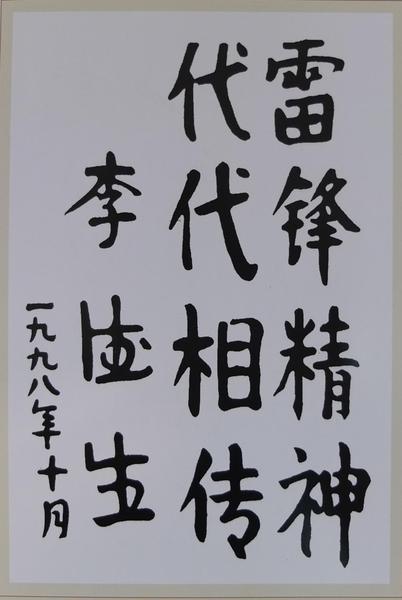 雷锋精神
代代相传
李德生
一九九八年十月